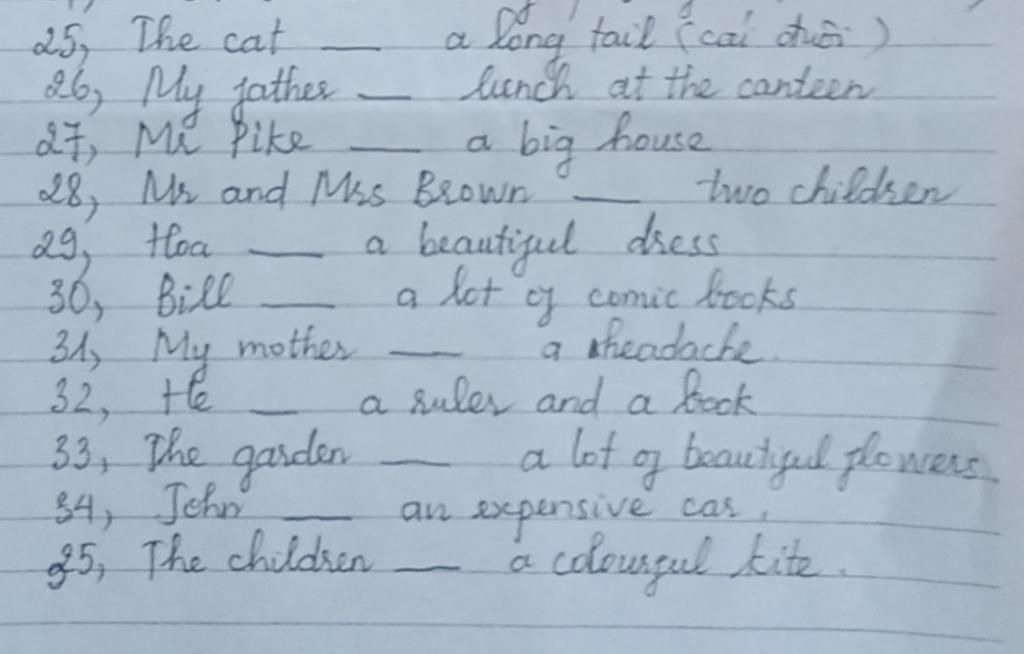 25, The cat __ a long tail (cái đuôi)
26, My father __ lunch at the canteen
27, Mr Pike __ a big house
28, Mr and Mrs Brown __ two children
29, Hoa __ a beautiful dress
30, Bill __ a lot of comic books
31, My mother __ a headache.
32, He __ a ruler and a book
33, The garden __ a lot of beautiful flowers
34, John __ an expensive car.
35, The children __ a colourful kite.